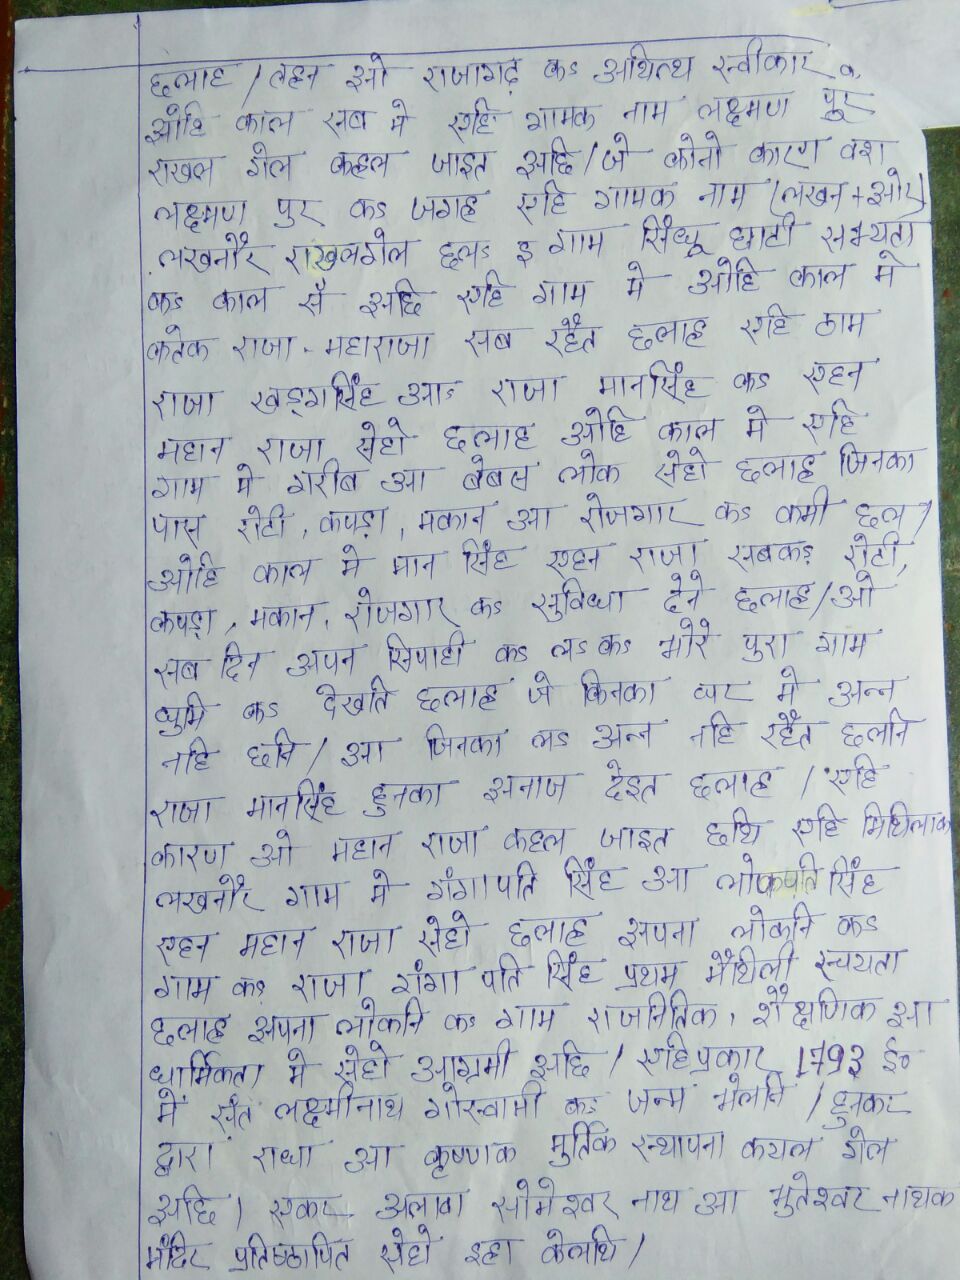 छलाह / तहन ओ राजागढ़ कऽ अथित्य स्वीकार क.
ओहि काल सब मे एहि गामक नाम लक्ष्मण पुर
राखल गेल कहल जाइत अछि / जे कोनो कारण वश
लक्ष्मण पुर कऽ जगह एहि गामक नाम (लखन + ओर)
लखनौर राखलगेल छलऽ इ गाम सिंधू घाटी सभ्यता
कऽ काल सँ अछि एहि गाम मे ओहि काल मे
कतेक राजा - महाराजा सब रहैत छलाह एहि ठाम
राजा खड्गसिंह आऽ राजा मानसिंह कऽ एहन
महान राजा सेहो छलाह ओहि काल मे एहि
गाम मे गरीब आ बेबस लोक सेहो छलाह जिनका
पास रोटी, कपड़ा, मकान आ रोजगार कऽ कमी छल /
ओहि काल मे मान सिंह एहन राजा सबकऽ रोटी,
कपड़ा, मकान, रोजगार कऽ सुविधा देने छलाह / ओ
सब दिन अपन सिपाही कऽ लऽ कऽ भोरे पुरा गाम
घुमि कऽ देखति छलाह जे किनका घर मे अन्न
नहि छनि / आ जिनका लऽ अन्न नहि रहैत छलनि
राजा मानसिंह हुनका अनाज देइत छलाह / एहि
कारण ओ महान राजा कहल जाइत छथि एहि मिथिलाक
लखनौर गाम मे गंगापति सिंह आ लोकपति सिंह
एहन महान राजा सेहो छलाह अपना लोकनि कऽ
गाम कऽ राजा गंगा पति सिंह प्रथम मैथिली रचयता
छलाह अपना लोकनि कऽ गाम राजनितिक, शैक्षणिक आ
धार्मिकता मे सेहो आग्रमी अछि / एहिप्रकार 1793 ई०
में संत लक्ष्मीनाथ गोस्वामी कऽ जन्म भेलनि / हुनकर
द्वारा राधा आ कृष्णक मुर्तिक स्थापना कयल गेल
अछि / एकर अलावा सोमेश्वर नाथ आ भुतेश्वर नाथक
मंदिर प्रतिष्ठापित सेहो इहा केलथि /